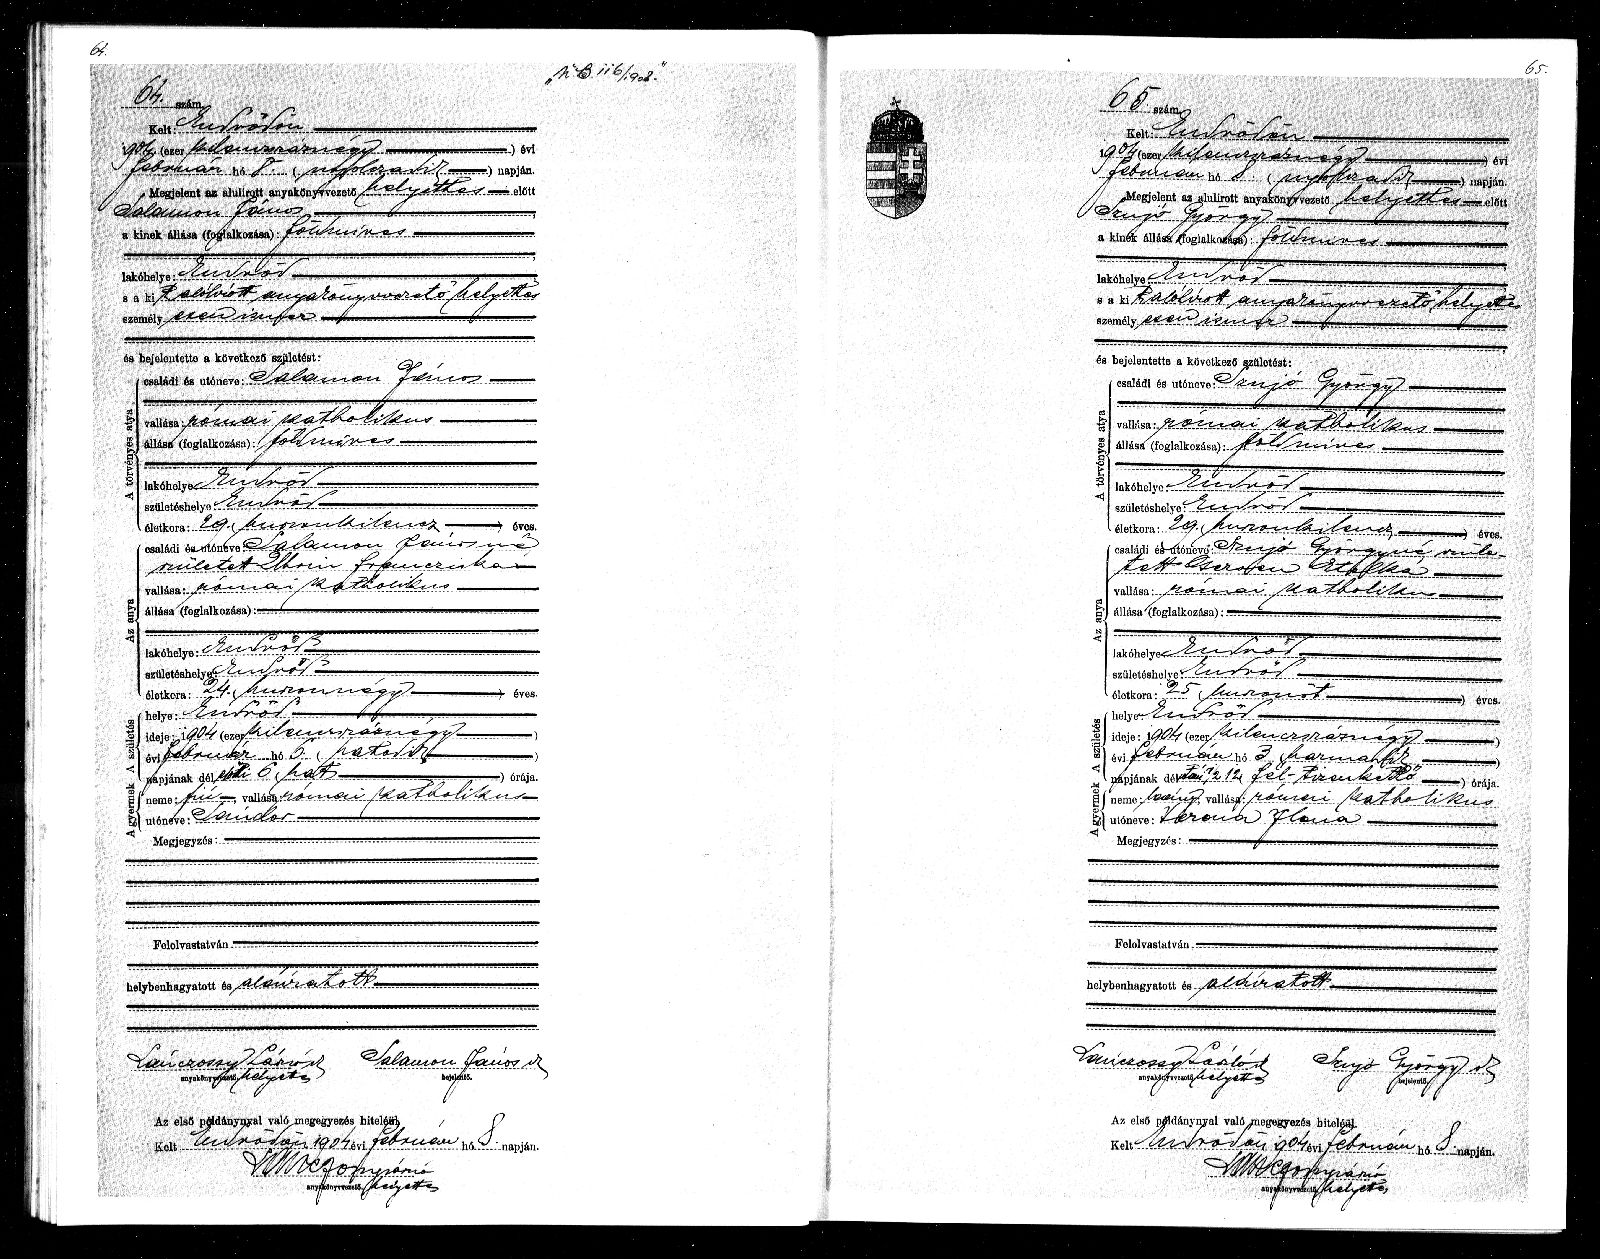 64.
64. szám.
Kelt: Endrődön
1904 (ezer kilenczszáznégy) évi
február hó 8. (nyolczadik) napján.
Megjelent az alulirott anyakönyvvezető helyettes előtt
Salamon János
a kinek állása (foglalkozása): földmives
lakóhelye: Endrőd
s a ki t alólirott anyakönyvvezető helyettes
személyesen ismer
és bejelentette a következő születést:
A törvényes atya
családi és utóneve: Salamon János
vallása: római katholikus
állása (foglalkozása): földmives
lakóhelye: Endrőd
születéshelye: Endrőd
életkora: 29. huszonkilencz éves.
Az anya
családi és utóneve: Salamon Jánosné
született Franciska
vallása: római katholikus
állása (foglalkozása):
lakóhelye: Endrőd
születéshelye: Endrőd
életkora: 24. huszonnégy éves.
A gyermek A születés
helye: Endrőd
ideje: 1904 (ezer kilenczszáznégy)
évi február hó 6. hatodik
napjának dél előtti 6. hat órája.
neme: fiú, vallása: római katholikus
utóneve: Sándor
Megjegyzés:
Felolvastatván
helybenhagyatott és aláiratott
Salamon János
anyakönyvvezető helyettes bejelentő.
Az első példánynyal való megegyezés hiteléül,
Kelt Endrődön, 1904 évi február hó 8. napján.
anyakönyvvezető helyettes
65.
65 szám.
Kelt: Endrődön
1904 (ezer kilenczszáznégy) évi
február hó 8. (nyolczadik) napján.
Megjelent az alulirott anyakönyvvezető helyettes előtt
Szujó György
a kinek állása (foglalkozása): földmives
lakóhelye: Endrőd
s a ki t alólirott anyakönyvvezető helyettes
személyesen ismer
és bejelentette a következő születést:
A törvényes atya
családi és utóneve: Szujó György
vallása: római katholikus
állása (foglalkozása): földmives
lakóhelye: Endrőd
születéshelye: Endrőd
életkora: 29. huszonkilencz éves.
Az anya
családi és utóneve: Szujó Györgyné szüle-
tett Etelka
vallása: római katholikus
állása (foglalkozása):
lakóhelye: Endrőd
születéshelye: Endrőd
életkora: 25. huszonöt éves.
A gyermek A születés
helye: Endrőd
ideje: 1904 (ezer kilenczszáznégy)
évi február hó 3. harmadik
napjának dél után ½12 fél-tizenkettő órája.
neme: leány, vallása: római katholikus
utóneve: Ilona
Megjegyzés:
Felolvastatván
helybenhagyatott és aláiratott
Szujó György
anyakönyvvezető helyettes bejelentő.
Az első példánynyal való megegyezés hiteléül,
Kelt Endrődön, 1904 évi február hó 8. napján.
anyakönyvvezető helyettes